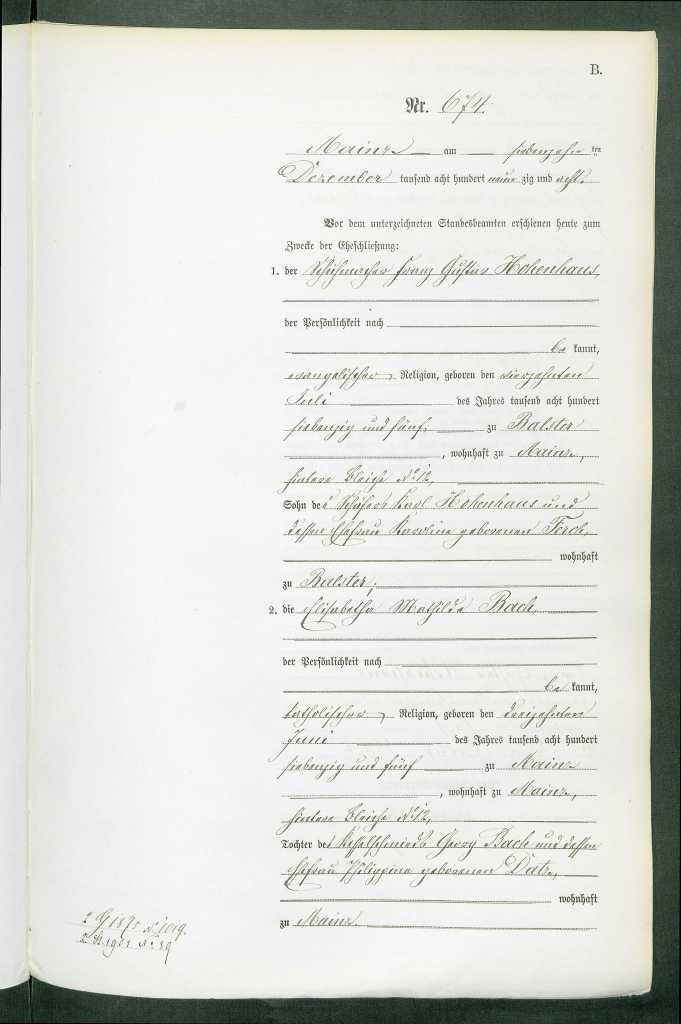 B.
Nr. 674.
Mainz am siebenzehn ten
Dezember tausend acht hundert neun zig und acht.
Vor dem unterzeichneten Standesbeamten erschienen heute zum
Zwecke der Eheschließung:
1. der Schuhmacher Franz Gustav Hohenhaus,
der Persönlichkeit nach
be kannt,
evangelischer Religion, geboren den vierzehnten
Juli des Jahres tausend acht hundert
siebenzig und fünf, zu Balster
, wohnhaft zu Mainz,
hintere Bleiche No 12,
Sohn des Schäfers Karl Hohenhaus und
dessen Ehefrau Karoline geborenen Ferch,
wohnhaft
zu Balster;
2. die Elisabetha Mathilde Bach,
der Persönlichkeit nach
be kannt,
katholischer Religion, geboren den dreizehnten
Juni des Jahres tausend acht hundert
siebenzig und fünf zu Mainz
, wohnhaft zu Mainz,
hintere Bleiche No 12,
Tochter des Kesselschmieds Georg Bach und dessen
Ehefrau Philippine geborenen Datz,
wohnhaft
zu Mainz.
G 1875 No 1019.
1901 No 39